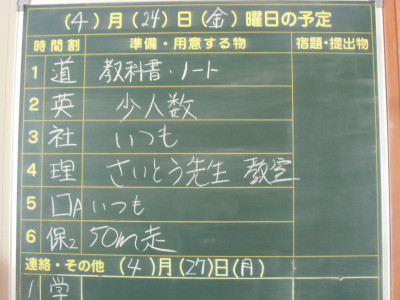 (4)月(24)日(金)曜日の予定
時間割 準備・用意する物 宿題・提出物
1 道 教科書・ノート
2 英 少人数
3 社 いつも
4 理 さいとう先生 教室
5 口A いつも
6 保2 50m走
連絡・その他 (4)月(27)日(月)
1 学